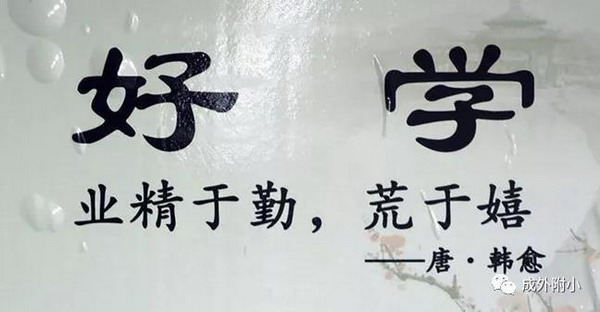 好 学
业精于勤，荒于嬉
——唐·韩愈
成外附小